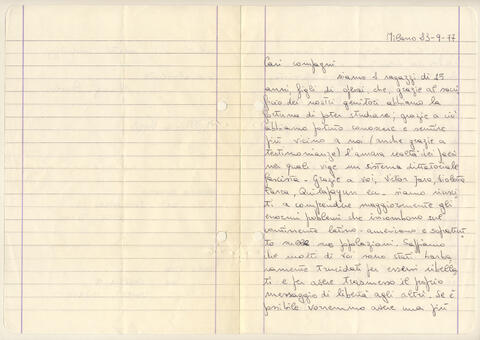 Milano 23-9-77
Cari compagni
siamo 2 ragazzi di 15
anni, figli di operai che, grazie al sacri
ficio dei nostri genitori abbiamo la
fortuna di poter studiare; grazie a ciò
abbiamo potuto conoscere e sentire
più vicino a noi (anche grazie a
testimonianze) l'amara realtà dei paesi
nei quali vige un sistema dittatoriale
fascista. Grazie a voi, Victor Jara, Violeta
Parra, Quilapayun ecc. siamo riusci
ti a comprendere maggiormente gli
enormi problemi che incombono sul
continente latino-americano e soprattut
to sulle popolazioni. Sappiamo
che molti di voi sono stati barba
ramente trucidati per essersi ribella
ti e per avere trasmesso il proprio
messaggio di libertà agli altri. Se è
possibile vorremmo avere una più